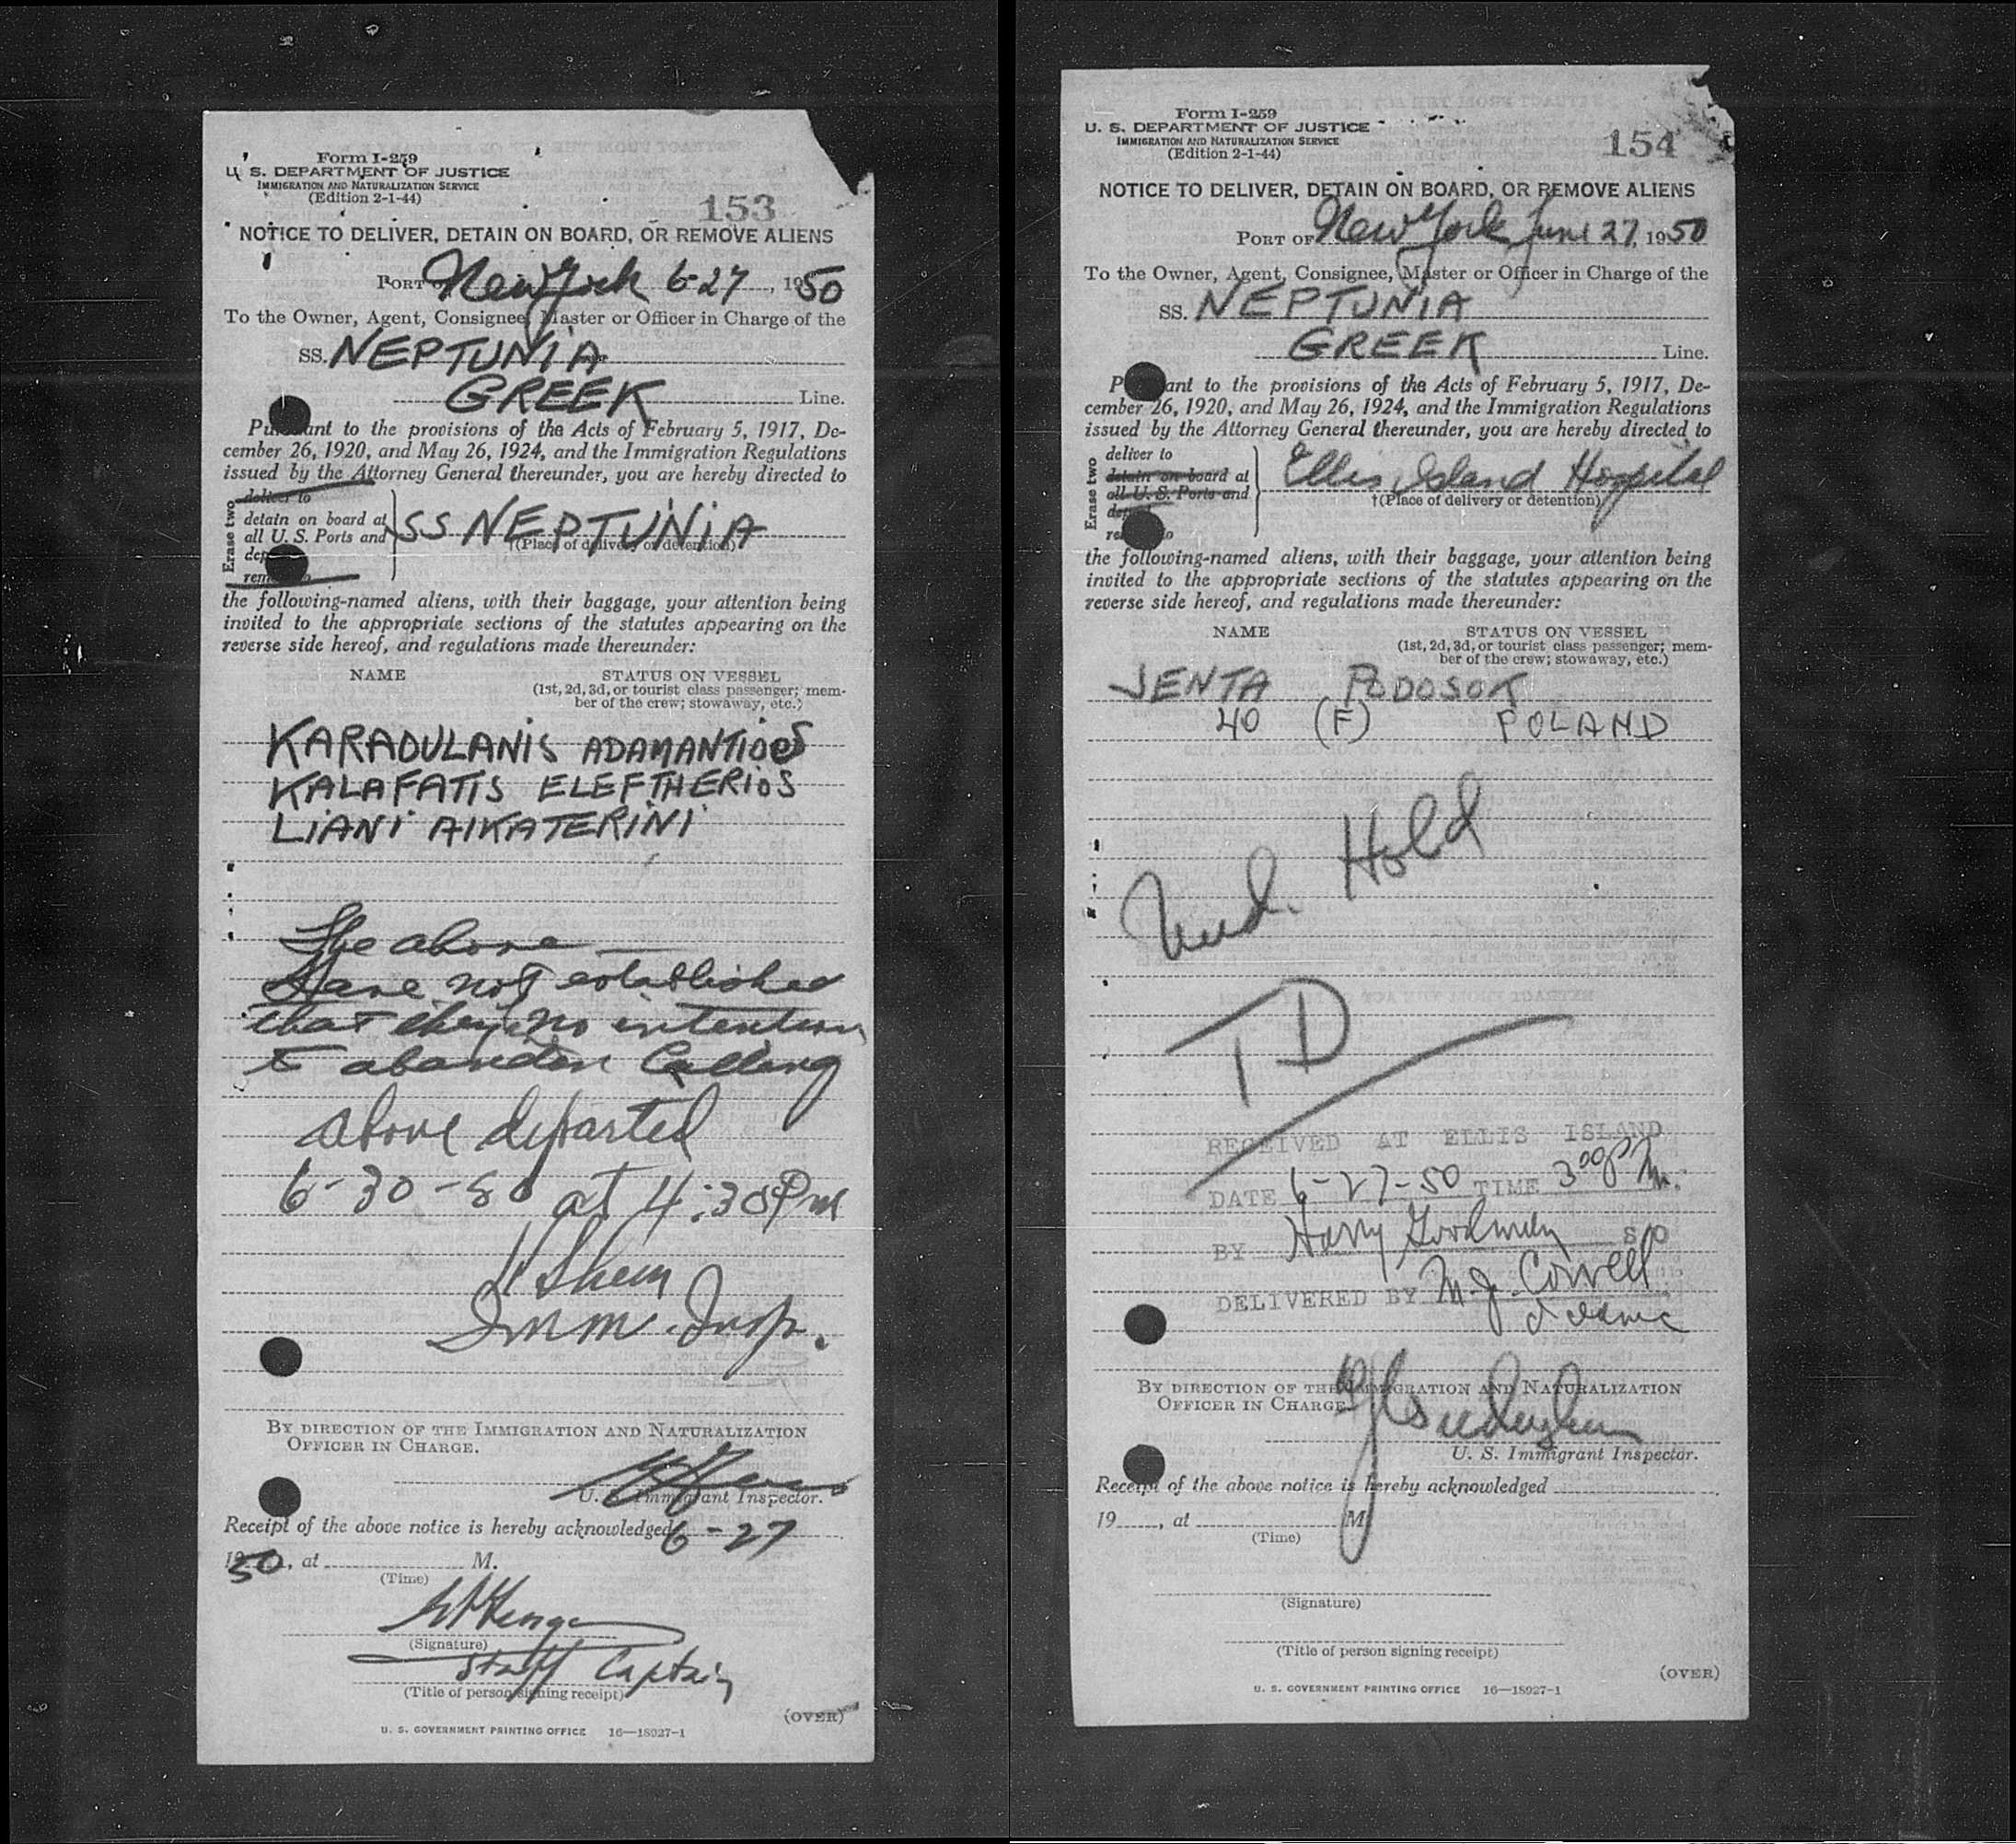 Form I-259
U. S. DEPARTMENT OF JUSTICE
IMMIGRATION AND NATURALIZATION SERVICE
(Edition 2-1-44)
153
NOTICE TO DELIVER, DETAIN ON BOARD, OR REMOVE ALIENS
PORT OF New York 6-27, 1950
To the Owner, Agent, Consignee, Master or Officer in Charge of the
SS. NEPTUNIA
GREEK Line.
Pursuant to the provisions of the Acts of February 5, 1917, De-
cember 26, 1920, and May 26, 1924, and the Immigration Regulations
issued by the Attorney General thereunder, you are hereby directed to
Erase two
deliver to
detain on board at
all U. S. Ports and
dep
rem to
SS NEPTUNIA
†(Place of delivery or detention)
the following-named aliens, with their baggage, your attention being
invited to the appropriate sections of the statutes appearing on the
reverse side hereof, and regulations made thereunder:
NAME
STATUS ON VESSEL
(1st, 2d, 3d, or tourist class passenger; mem-
ber of the crew; stowaway, etc.)
KARADULANIS ADAMANTIOS
KALAFATIS ELEFTHERIOS
LIANI AIKATERINI
The above
Have not established
that they no intention
to abandon Calling
above departed
6-30-50 at 4:30 PM
Shein
Imm. Insp.
BY DIRECTION OF THE IMMIGRATION AND NATURALIZATION
OFFICER IN CHARGE.
U. S. Immigrant Inspector.
Receipt of the above notice is hereby acknowledged 6-27
1950, at M.
(Time)
(Signature)
Staff Captain
(Title of person signing receipt)
(OVER)
U. S. GOVERNMENT PRINTING OFFICE 16—18927-1
Form I-259
U. S. DEPARTMENT OF JUSTICE
IMMIGRATION AND NATURALIZATION SERVICE
(Edition 2-1-44)
154
NOTICE TO DELIVER, DETAIN ON BOARD, OR REMOVE ALIENS
PORT OF New York June 27, 1950
To the Owner, Agent, Consignee, Master or Officer in Charge of the
SS. NEPTUNIA
GREEK Line.
Pursuant to the provisions of the Acts of February 5, 1917, De-
cember 26, 1920, and May 26, 1924, and the Immigration Regulations
issued by the Attorney General thereunder, you are hereby directed to
Erase two
deliver to
detain on board at
all U. S. Ports and
dep
re to
Ellis Island Hospital
†(Place of delivery or detention)
the following-named aliens, with their baggage, your attention being
invited to the appropriate sections of the statutes appearing on the
reverse side hereof, and regulations made thereunder:
NAME
STATUS ON VESSEL
(1st, 2d, 3d, or tourist class passenger; mem-
ber of the crew; stowaway, etc.)
JENTA PODOSOK
40 (F) POLAND
Med. Hold
TD
RECEIVED AT ELLIS ISLAND
DATE 6-27-50 TIME 3 00 P M.
BY Harry Goodman S/O
DELIVERED BY M. J. Correll
BY DIRECTION OF THE IMMIGRATION AND NATURALIZATION
OFFICER IN CHARGE.
U. S. Immigrant Inspector.
Receipt of the above notice is hereby acknowledged
19 , at M.
(Time)
(Signature)
(Title of person signing receipt)
(OVER)
U. S. GOVERNMENT PRINTING OFFICE 16—18927-1